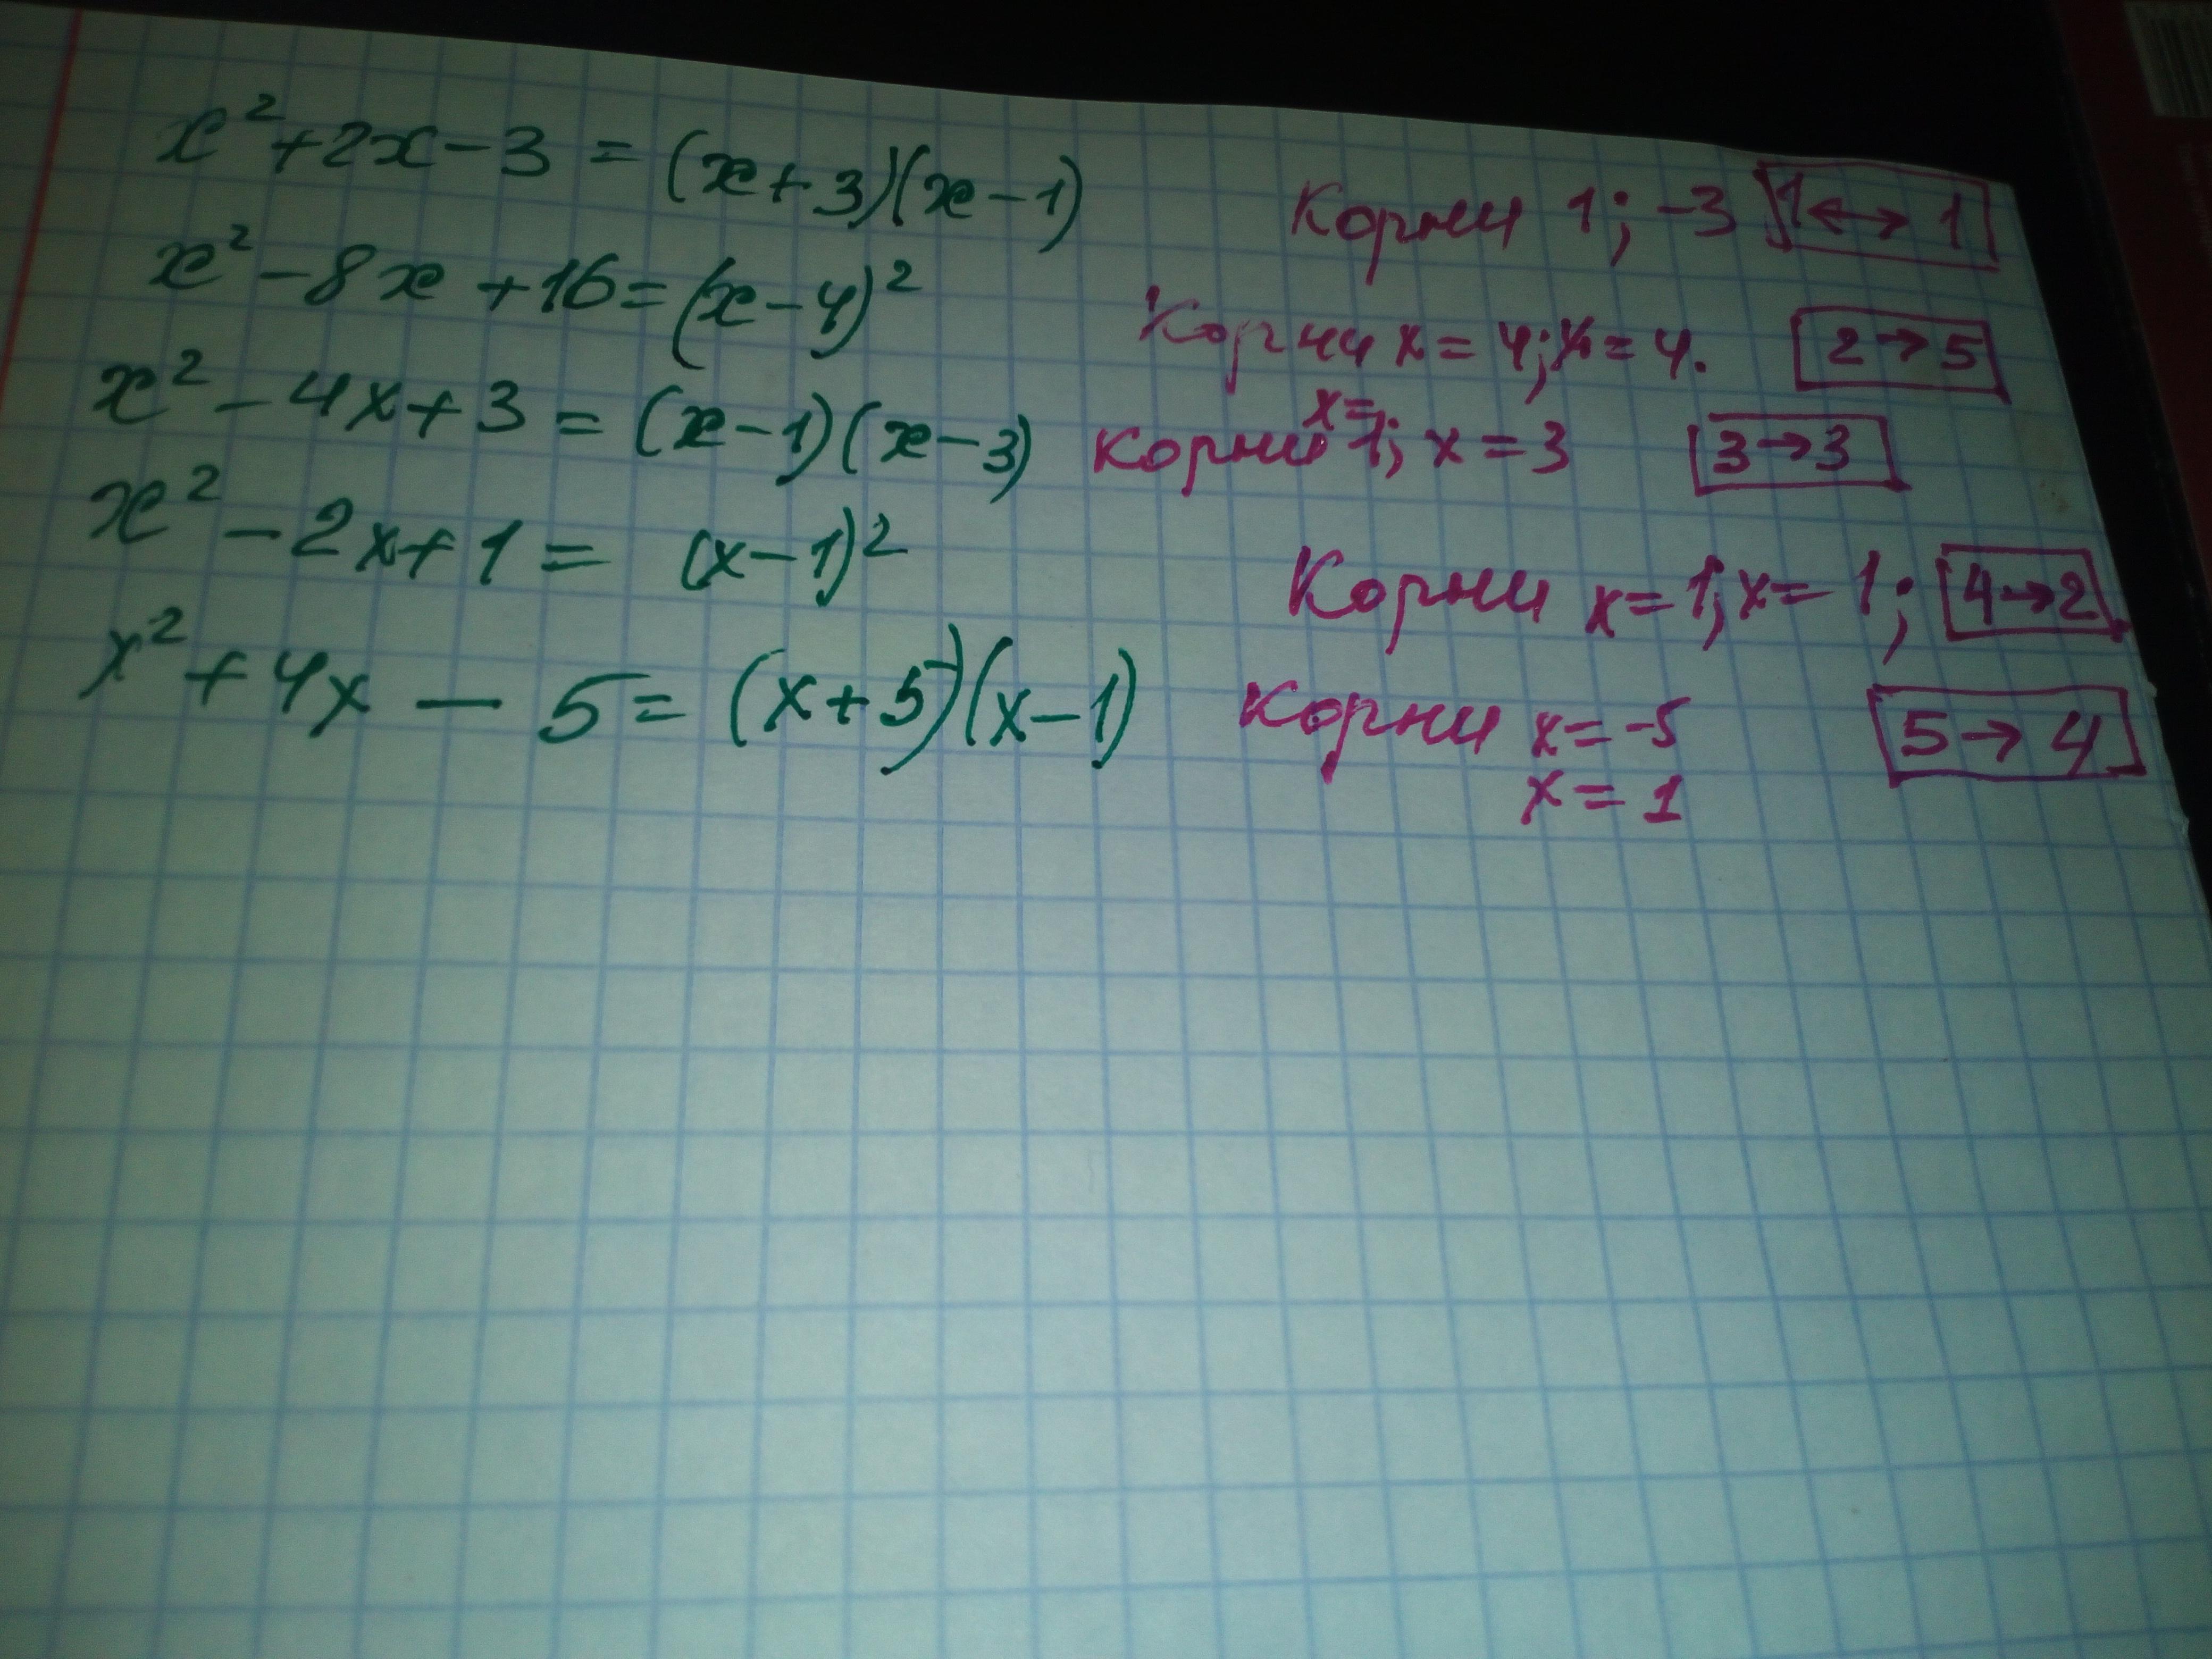 x² + 2x - 3 = (x + 3)(x - 1) Корни 1; -3 1 ↔ 1
x² - 8x + 16 = (x - 4)² Корни x = 4; x = 4. 2 → 5
x² - 4x + 3 = (x - 1)(x - 3) Корни x = 1; x = 3 3 → 3
x² - 2x + 1 = (x - 1)² Корни x = 1; x = 1; 4 → 2
x² + 4x - 5 = (x + 5)(x - 1) Корни x = -5 5 → 4
x = 1